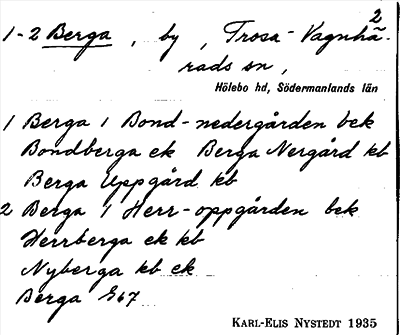 2
1-2 Berga , by , Trosa-Vagnhä-
rads sn ,
Hölebo hd, Södermanlands län
1 Berga 1 Bond-nedergården bek
Bondberga ek Berga Nergård kb
Berga Uppgård kb
2 Berga 1 Herr-oppgården bek
Herrberga ek kb
Nyberga kb ek
Berga G67
KARL-ELIS NYSTEDT 1935